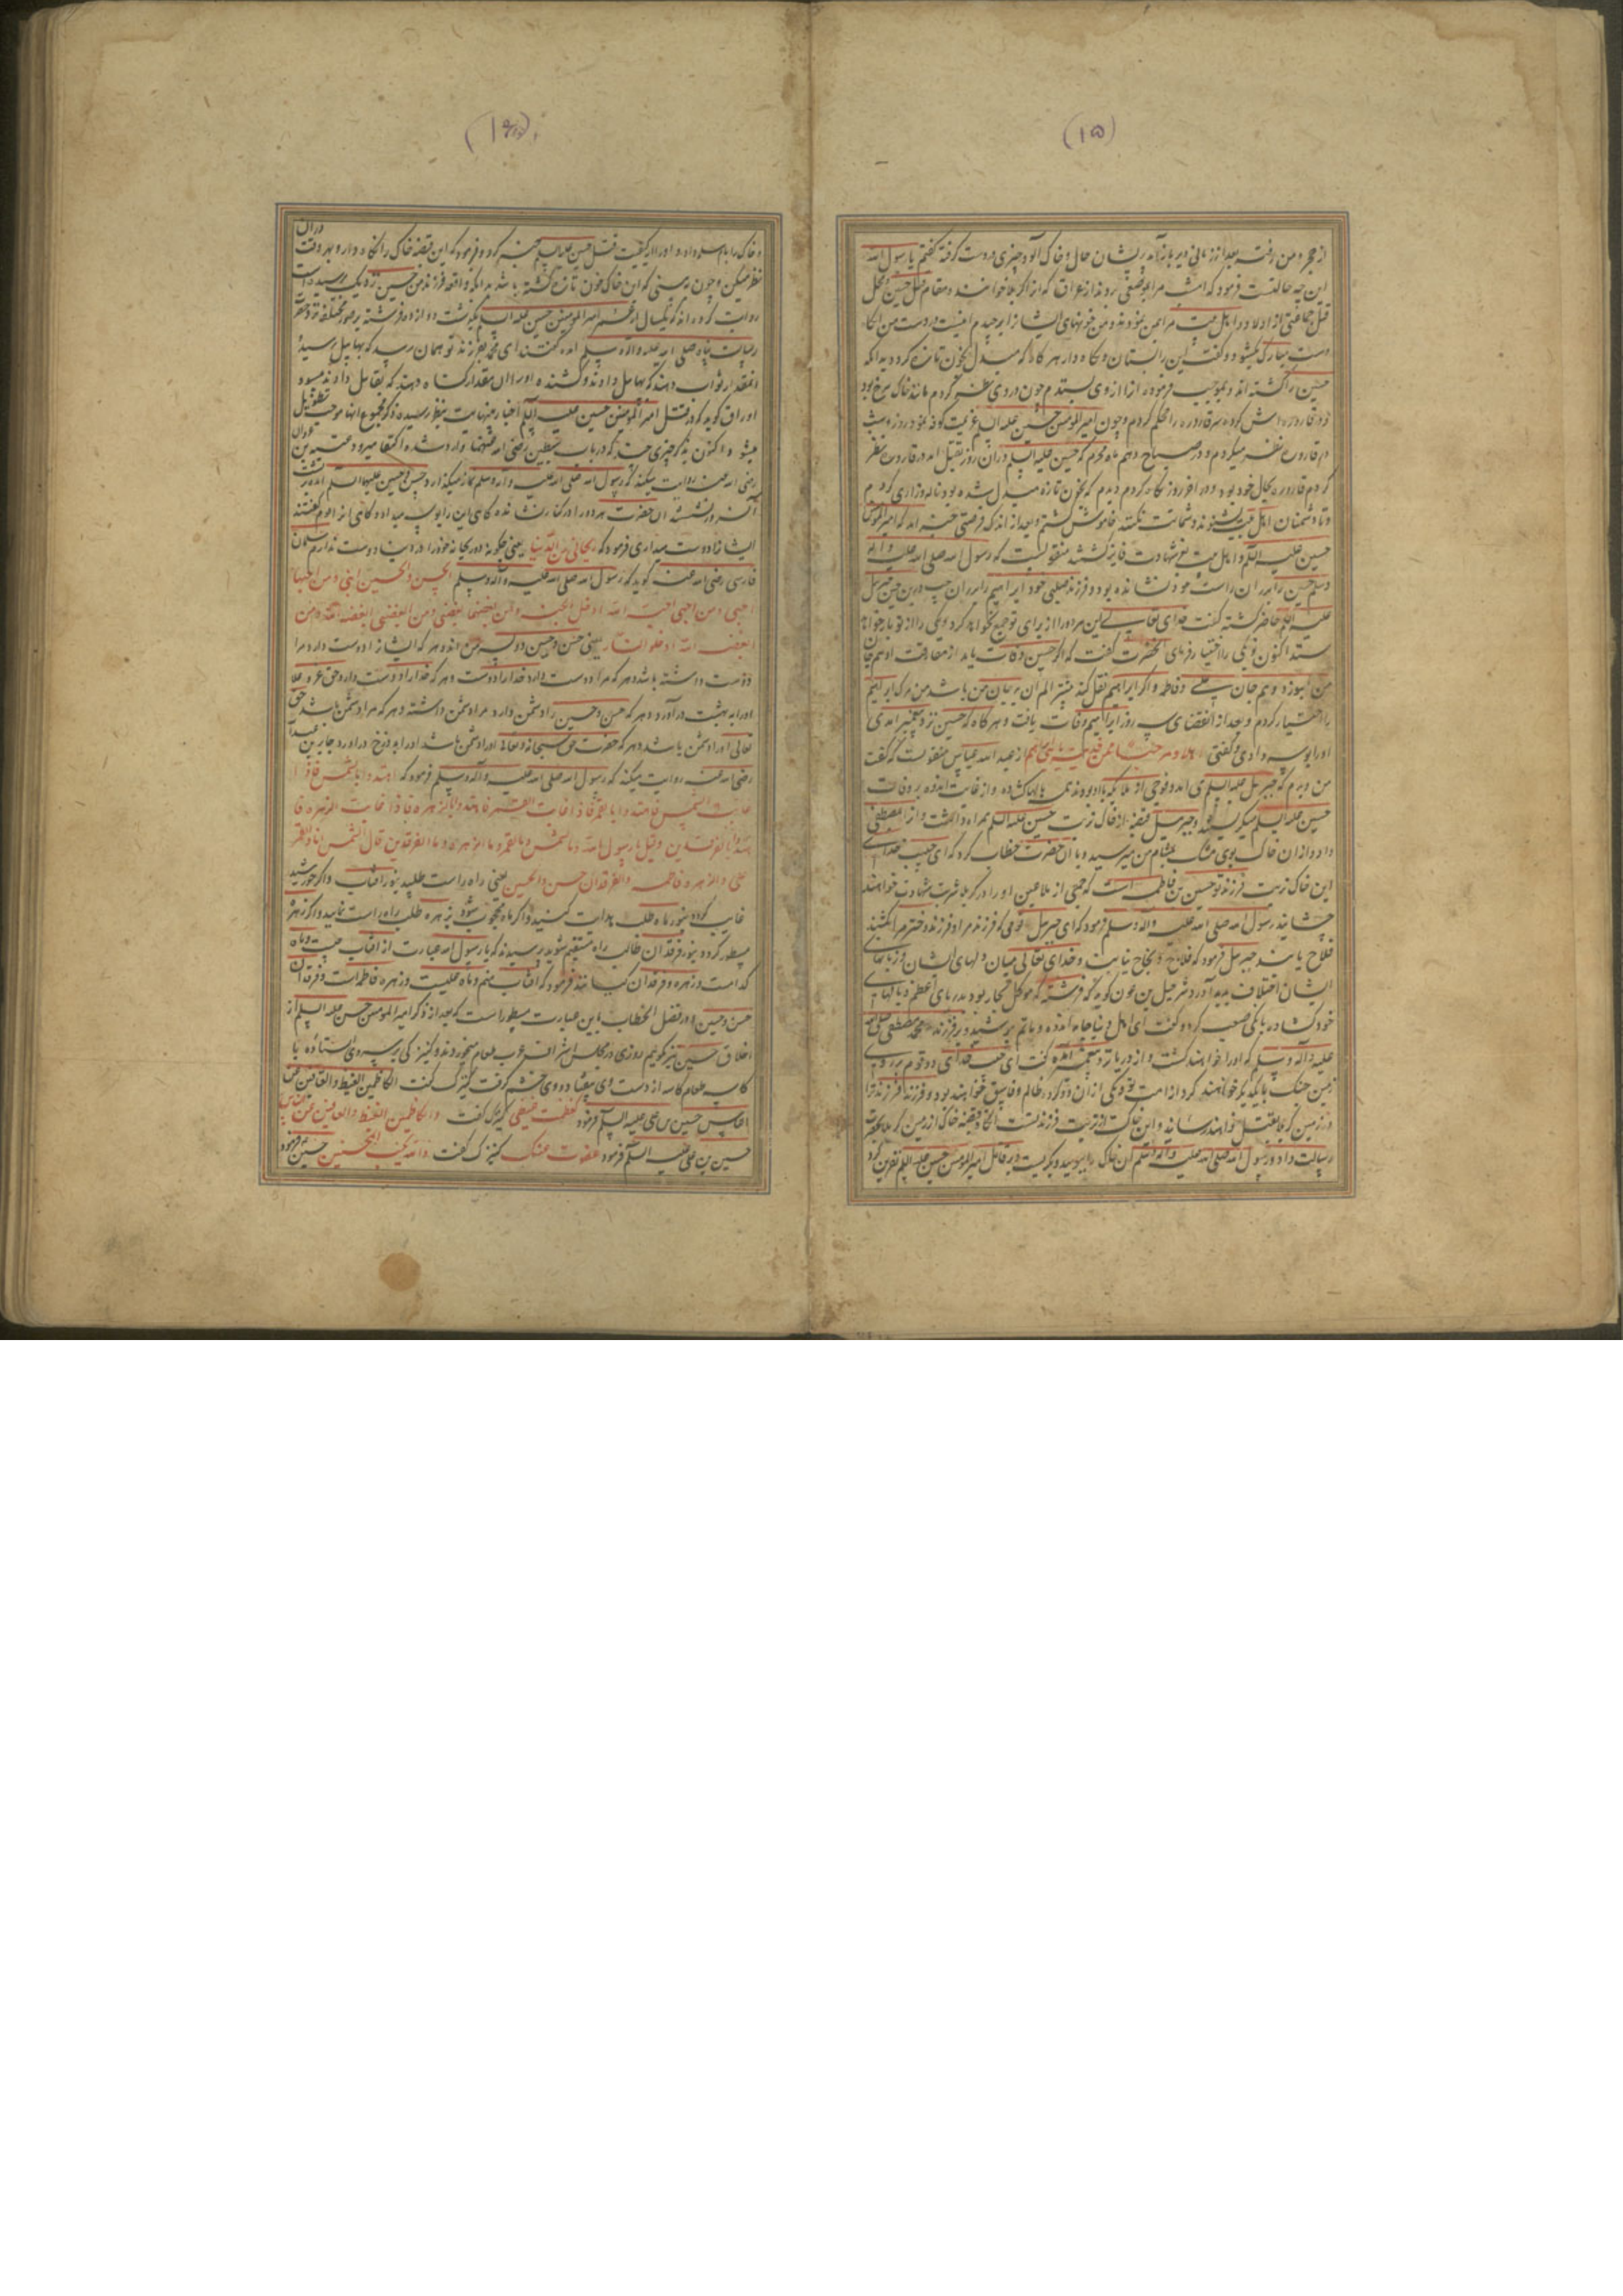 (۱۵)
از حجره من رفت بعد از زمانی دیر باز آمد پریشان حال و خاک آلود چیزی در دست گرفته گفتم یا رسول الله
این چه حالتست فرمود که امشب مرا بموضعی بردند از عراق که آنرا کربلا خوانند و مقام قتل حسین و محل
قتل جماعتی از اولاد و اهل بیت مرا بمن نمودند و من خونهای ایشانرا برچیدم اینست در دست من
دست مبارک و گفت این را بستان و نگاه دار هرگاه که مبدل بخون تازه گردد بدانکه
حسین را کشته اند و بموجب فرموده آنرا از وی بستدم چون در وی نظر کردم مانند خاک سرخ بود
در قاروره کرده سر قاروره را محکم کردم و چون امیر المومنین حسین علیه السلم عزیمت کوفه نمود هر روز
در قاروره نظر میکردم و در صباح دهم ماه محرم که حسین علیه السلم در آن روز بقتل آمد در قاروره نظر
کردم قاروره بحال خود بود و در آخر روز نگاه کردم دیدم که بخون تازه مبدل شده بود ناله و زاری کردم
و تا دشمنان اهل بیت نشنوند و شماتت نکنند خاموش گشتم و بعد از اندک فرصتی خبر آمد که امیر المومنین
حسین علیه السلم و اهل بیت بعز شهادت فایز گشتند منقولست که رسول الله صلی الله علیه و آله
و سلم حسین را بر ران راست خود نشانده بود و فرزند صلبی خود ابراهیم را بر ران چپ درین حین جبرئیل
علیه السلم حاضر گشته گفت خدای تعالی این هر دو را از برای تو جمع نخواهد کرد و یکی را از تو باز خواهد
ستد اکنون تو یکی را اختیار فرمای آنحضرت گفت که اگر حسین وفات یابد از مفارقت او هم جان
من بسوزد و هم جان علی و فاطمه و اگر ابراهیم نقل کند بیشتر الم آن بر جان من باشد من مرگ ابراهیم
را اختیار کردم و بعد از انقضای سه روز ابراهیم وفات یافت و هرگاه که حسین نزد پیغمبر آمدی
او را بوسه دادی و گفتی اهلا و مرحبا بمن فدیته بابنی ابراهیم از عبد الله عباس منقولست که گفت
من دیدم که جبرئیل علیه السلم می آمد و فوجی از ملایکه با او بودند همه بالها کشاده و از غایت اندوه بر وفات
حسین علیه السلم میگریستند و جبرئیل قبضه از خاک تربت حسین علیه السلم همراه داشت و
داد و از آن خاک بوی مشک بمشام من میرسید و با آن حضرت خطاب کرد که ای حبیب خدای
این خاک تربت فرزند تو حسین بن فاطمه است که جمعی از ملاعین او را در کربلا شربت شهادت خواهند
چشانید رسول الله صلی الله علیه و آله و سلم فرمود که ای جبرئیل قومی که فرزند مرا و فرزند دختر مرا بکشند
فلاح یابند جبرئیل فرمود که فلاح و نجاح نیابند و خدای تعالی میان دلهای ایشان و زبانهای
ایشان اختلاف پدید آورد شرحبیل بن عون گوید که فرشته که موکل بحار بود بدریای اعظم و بالهای
خود کشاد بانگی صعب کرد و گفت ای اهل دنیا جامه اندوه و ماتم بپوشید بر فرزند محمد مصطفی صلی الله
علیه و آله و سلم که او را خواهند کشت و از دریا نزد پیغمبر آمده گفت ای حبیب خدای دو قوم بر روی
زمین جنگ با یکدیگر خواهند کرد از امت تو و یکی از آن دو گروه ظالم و فاسق خواهند بود و فرزند فرزند ترا
در زمین کربلا بقتل خواهند رسانید و این خاک تربت فرزند تست آنگاه قبضه خاکی از زمین کربلا بحضرت
رسالت داد و رسول الله صلی الله علیه و آله و سلم آن خاک را ببوسید و بگریست و بر قاتل امیر المومنین حسین علیه السلم نفرین کرد
و خاک را بام سلمه داد و او را از کیفیت قتل حسین علیه السلم خبر کرد و فرمود که این قبضه خاک را نگاه دار و بهر وقت در آن
نظر میکن و چون ببینی که این خاک خون تازه گشته باشد بدانکه واقعه فرزند من حسین نزدیک رسید
روایت کرده اند که یکسال از عمر امیر المومنین حسین علیه السلم بگذشت دوازده فرشته بر صور مختلفه نزد حضرت
رسالت پناه صلی الله علیه و آله و سلم آمده گفتند ای محمد بفرزند تو همان رسد که بهابیل رسید و
آنمقدار ثواب دهند که بهابیل دادند و کشنده او را آن مقدار گناه دهند که بقابیل دادند مسود
اوراق گوید که در قتل امیر المومنین حسین علیه السلم اخبار بینهایت بنظر رسیده ذکر مجموع آنها موجب تطویل
میشود و اکنون بذکر چیزی چند که در باب سبطین رضی الله عنهما وارد شده اکتفا میرود
رضی الله عنه روایت میکند که رسول الله صلی الله علیه و آله و سلم نماز میگذارد حسن و حسین علیهما السلم آمده
نشستند آن حضرت هر دو را در کنار نشانده گاهی این را بوسه میداد و گاهی آنرا مردم گفتند
ایشانرا دوست میداری فرمود که ریحانی من الدنیا یعنی چگونه دو ریحانه خود را در دنیا دوست ندارم سلمان
فارسی رضی الله عنه گوید که رسول الله صلی الله علیه و آله و سلم الحسن و الحسین ابنی و من احبهما
احبنی و من احبنی احبه الله ادخل الجنة و من ابغضهما ابغضنی و من ابغضنی ابغضه الله و من
ابغضه الله ادخله النار یعنی حسن و حسین دو پسر من اند و هر که ایشانرا دوست دارد مرا
دوست داشته باشد و هر که مرا دوست دارد خدا را دوست و هر که خدا را دوست دارد حق عز و علا
او را به بهشت در آورد و هر که حسن و حسین را دشمن دارد مرا دشمن داشته و هر که مرا دشمن باشد حق
تعالی او را دشمن باشد و هر که حضرت حق سبحانه و تعالی او را دشمن باشد او را به دوزخ در آورد جابر بن عبد الله
رضی الله عنه روایت میکند که رسول الله صلی الله علیه و آله و سلم فرمود که اهتدوا بالشمس فاذا
غابت الشمس فاهتدوا بالقمر فاذا غاب القمر فاهتدوا بالزهره فاذا غابت الزهره فا
هتدوا بالفرقدین و قیل یا رسول الله ما الشمس و ما القمر و ما الزهره و ما الفرقدین قال الشمس انا و القمر
علی و الزهره فاطمه و الفرقدان حسن و الحسین یعنی راه راست طلبید از آفتاب و اگر خورشید
غایب گردد بنور ماه طلب هدایت کنید و اگر ماه محجوب شود بزهره طلب راه راست نمایید و اگر زهره
مستور گردد بنور فرقدان طالب راه مستقیم شوید پرسیدند که یا رسول الله عبارت از آفتاب چیست و ماه
کدامست و زهره و فرقدان کیانند فرمود که آفتاب منم و ماه علیست و زهره فاطمه است و فرقدان
حسن و حسین و در فصل الخطاب باین عبارت مسطور است که بعد از ذکر امیر المومنین حسن علیه السلم از
اخلاق حسین نیز گوییم روزی در مجلس اشراف عرب طعام میخوردند و کنیزکی بر سر وی ایستاده با
کاسه طعام کاسه از دست وی بیفتاد و وی خشم گرفت کنیزک گفت الکاظمین الغیظ و العافین عن
الناس حسین بن علی علیه السلم فرمود کظمت غیظی کنیزک گفت و الکاظمین الغیظ و العافین عن الناس
حسین بن علی علیه السلم فرمود عفوت عنک کنیزک گفت و الله یحب المحسنین حسین فرمود